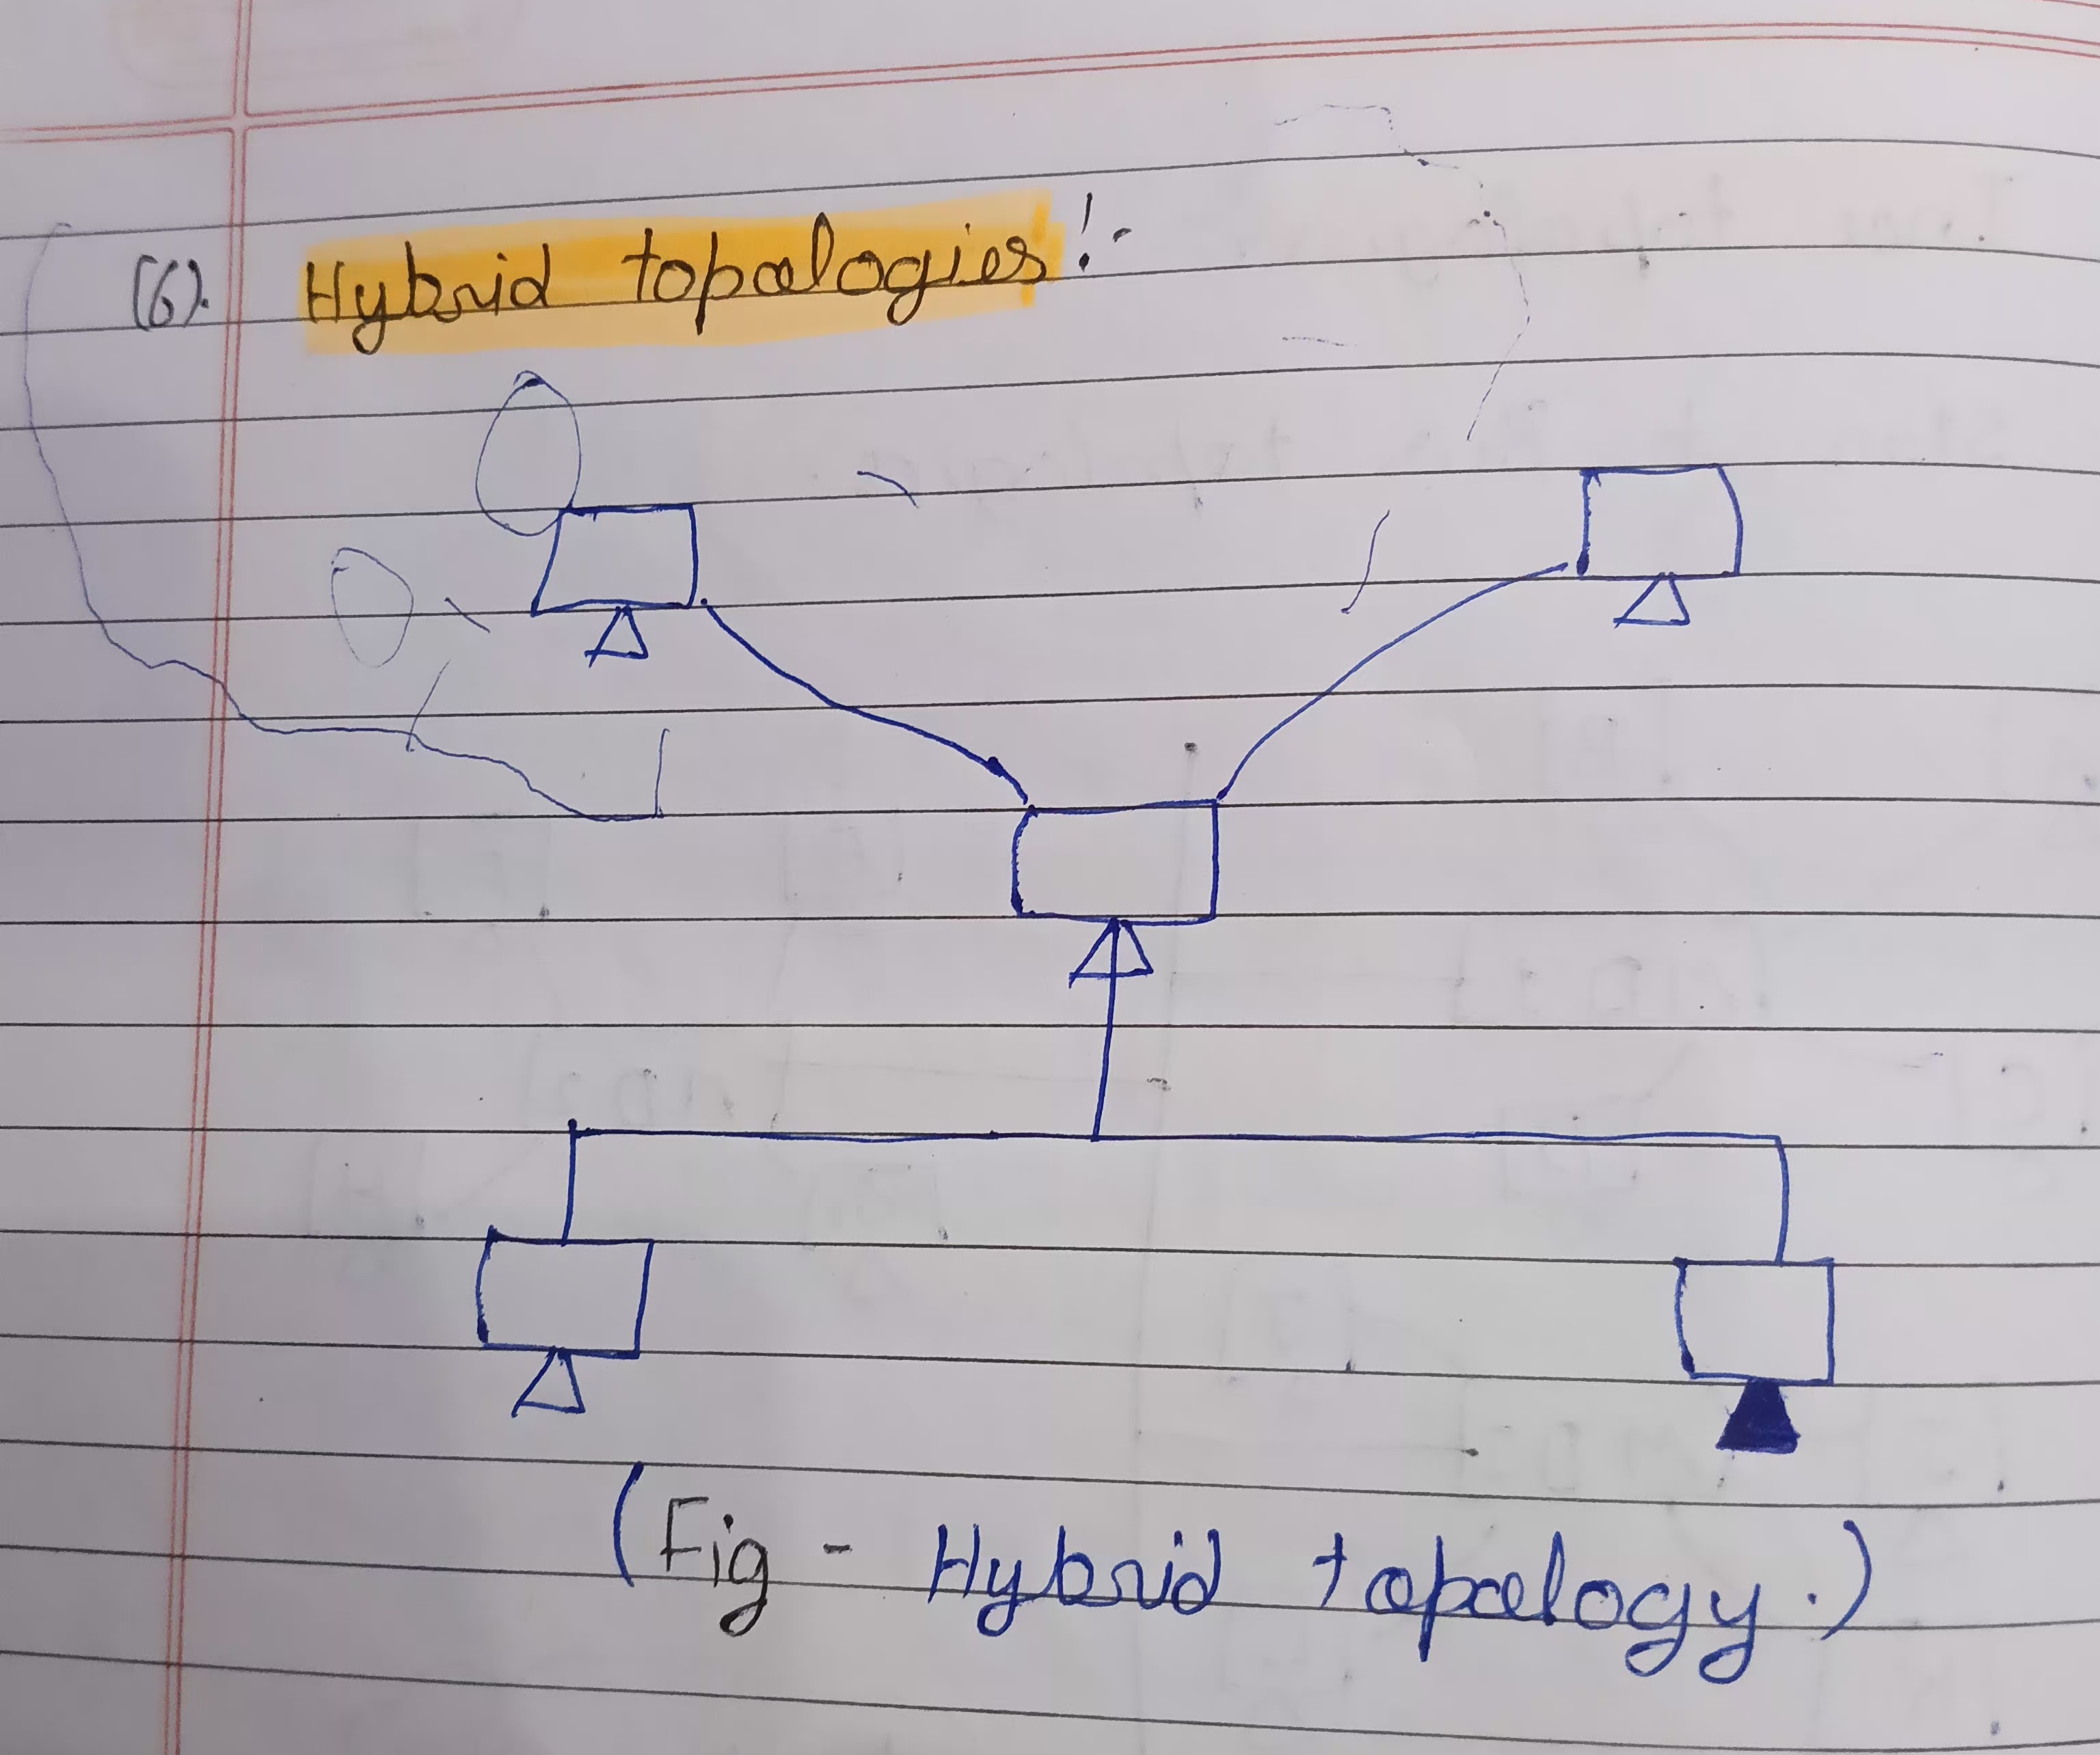 (6). Hybrid topologies :-
(Fig - Hybrid topology.)